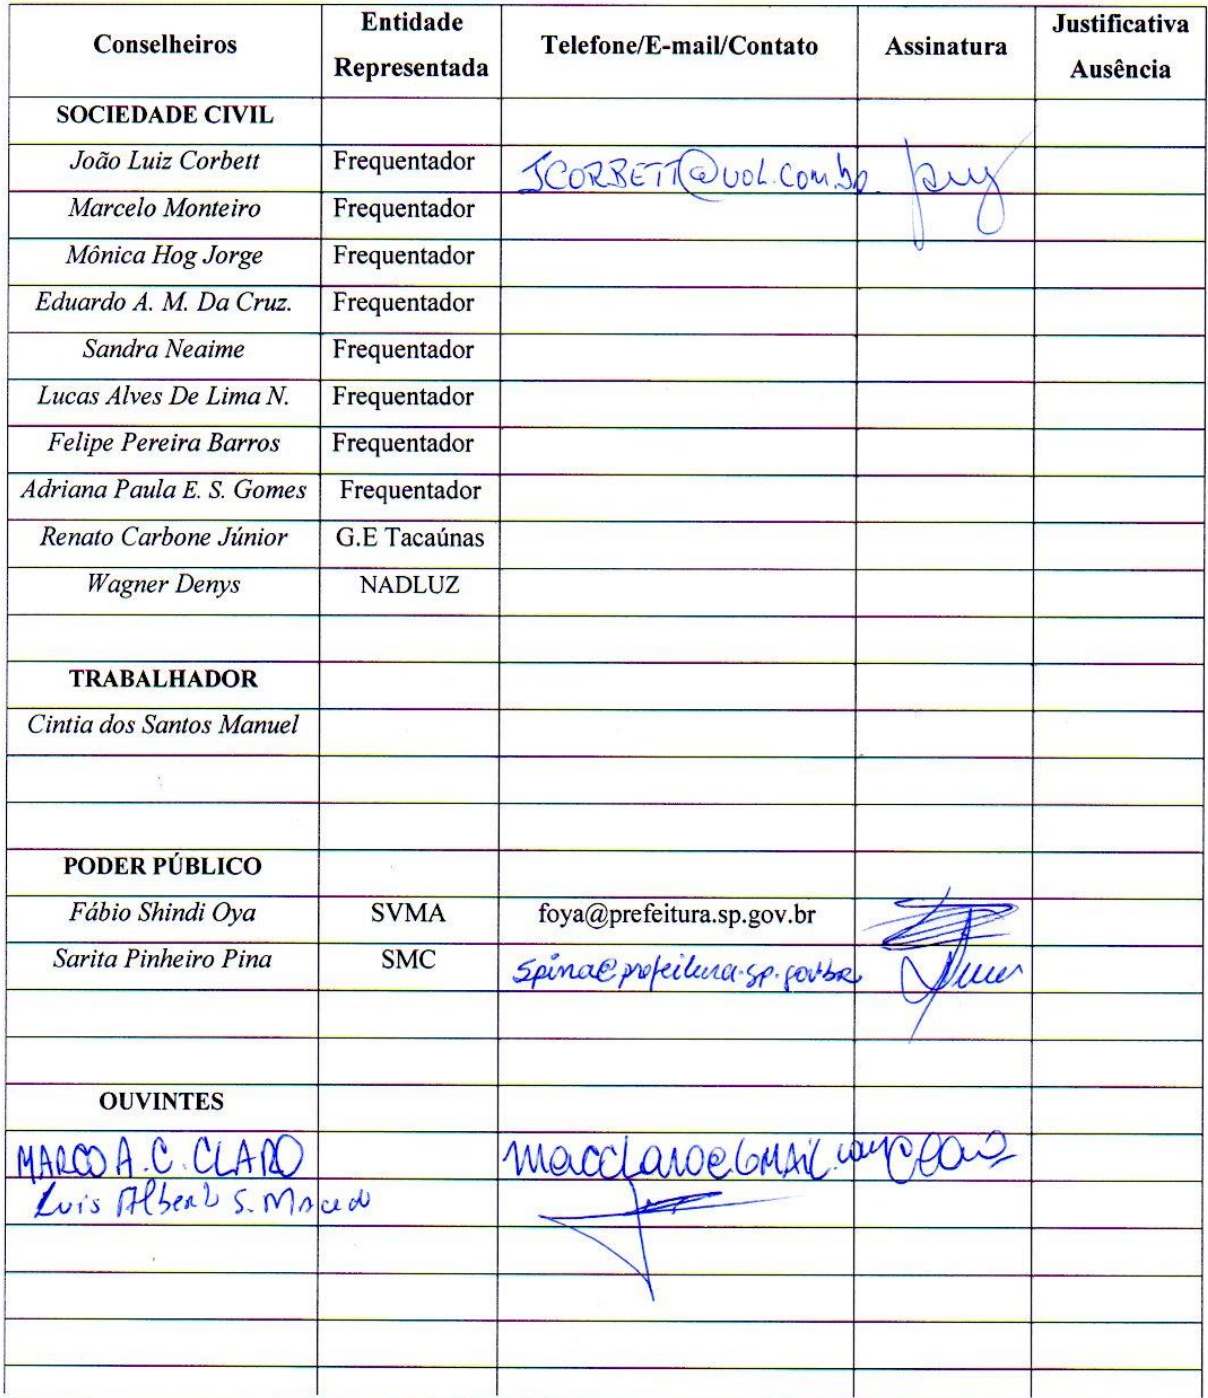 Conselheiros Entidade Representada Telefone/E-mail/Contato Assinatura Justificativa Ausência
SOCIEDADE CIVIL
João Luiz Corbett Frequentador JCORBETT@UOL.COM.br
Marcelo Monteiro Frequentador
Mônica Hog Jorge Frequentador
Eduardo A. M. Da Cruz. Frequentador
Sandra Neaime Frequentador
Lucas Alves De Lima N. Frequentador
Felipe Pereira Barros Frequentador
Adriana Paula E. S. Gomes Frequentador
Renato Carbone Júnior G.E Tacaúnas
Wagner Denys NADLUZ
TRABALHADOR
Cintia dos Santos Manuel
PODER PÚBLICO
Fábio Shindi Oya SVMA foya@prefeitura.sp.gov.br
Sarita Pinheiro Pina SMC spina@prefeitura.sp.gov.br
OUVINTES
MARCO A. C. CLARO macclaro@GMAIL.com
Luis Albert S. Macedo